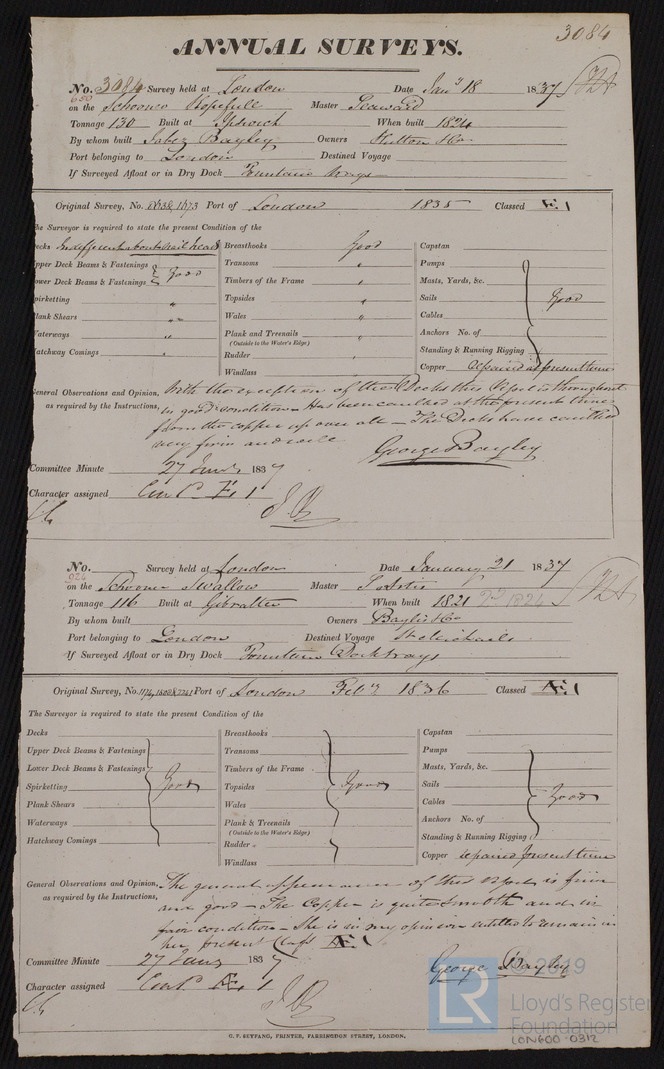 3084
ANNUAL SURVEYS.
No. 3084 Survey held at London Date Jany 18 1837
650
on the Schooner Hopefull Master Seaward
Tonnage 130 Built at Ipswich When built 1824
By whom built Jabez Bayley Owners Hutton & Co.
Port belonging to London Destined Voyage
If Surveyed Afloat or in Dry Dock Fountain Ways
Original Survey, No. Port of London 1835 Classed Æ 1
The Surveyor is required to state the present Condition of the
Decks Indifferent about nail heads
Upper Deck Beams & Fastenings
Lower Deck Beams & Fastenings
Good
Spirketting "
Plank Shears "
Waterways "
Hatchway Comings "
Breasthooks Good
Transoms "
Timbers of the Frame "
Topsides "
Wales "
Plank and Treenails "
(Outside to the Water's Edge)
Rudder "
Windlass
Capstan
Pumps
Masts, Yards, &c.
Sails
Cables
Anchors No. of
Standing & Running Rigging
Good
Copper repaired at present time
General Observations and Opinion, With the exception of the Decks this Vessel is throughout
as required by the Instructions, in good condition Has been caulked at the present time
from the copper up over all – The Decks have caulked
very firm and well
George Bayley
Committee Minute 27 Jany 1837
Character assigned Cont'd Æ 1
No. Survey held at London Date January 21 1837
926
on the Schooner Swallow Master
Tonnage 116 Built at Gibralter When built 1821
By whom built Owners Baylis & Co
Port belonging to London Destined Voyage St Michaels
If Surveyed Afloat or in Dry Dock Fountain Dock Ways
Original Survey, No. Port of London Feby 1836 Classed Æ 1
The Surveyor is required to state the present Condition of the
Decks
Upper Deck Beams & Fastenings
Lower Deck Beams & Fastenings
Spirketting
Plank Shears
Waterways
Hatchway Comings
Good
Breasthooks
Transoms
Timbers of the Frame
Topsides
Wales
Plank & Treenails
(Outside to the Water's Edge)
Rudder
Windlass
Good
Capstan
Pumps
Masts, Yards, &c.
Sails
Cables
Anchors No. of
Standing & Running Rigging
Good
Copper repaired present time
General Observations and Opinion, The general appearance of this Vessel is firm
as required by the Instructions, and good – The Copper is quite smooth and in
fair condition – She is in my opinion entitled to remain in
her present Class Æ 1
George Bayley
Committee Minute 27 Jany 1837
Character assigned Cont'd Æ 1
G. F. SEYFANG, PRINTER, FARRINGDON STREET, LONDON.
LR
© 2019
Lloyd's Register
Foundation
LON600-0312